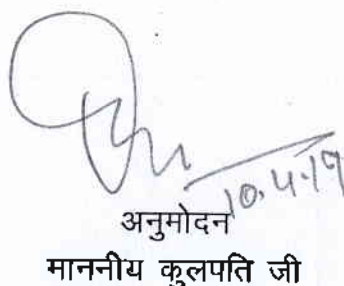 10.4.19
अनुमोदन
माननीय कुलपति जी